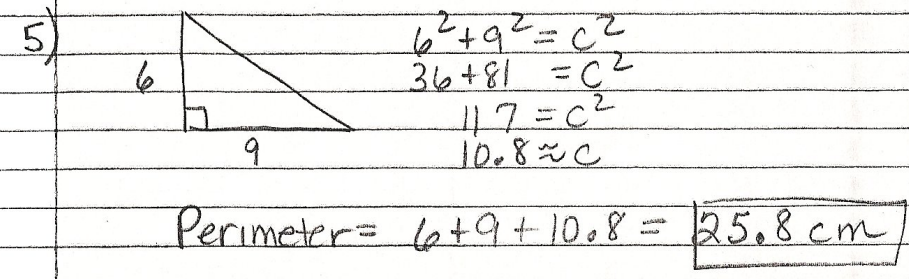 5)
6² + 9² = c²
6
36 + 81 = c²
117 = c²
9
10.8 ≈ c
Perimeter = 6 + 9 + 10.8 = 25.8 cm